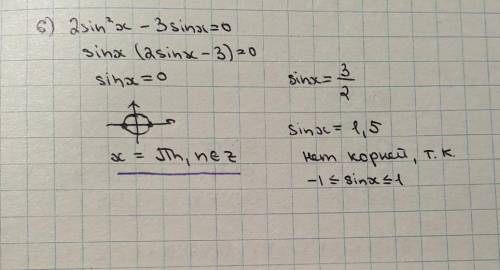 б) 2sin²x - 3sinx=0
sinx (2sinx - 3)=0
sinx=0
x = πn, n∈z
sinx= 3/2
sinx= 1,5
нет корней, т.к.
-1 ≤ sinx ≤ 1